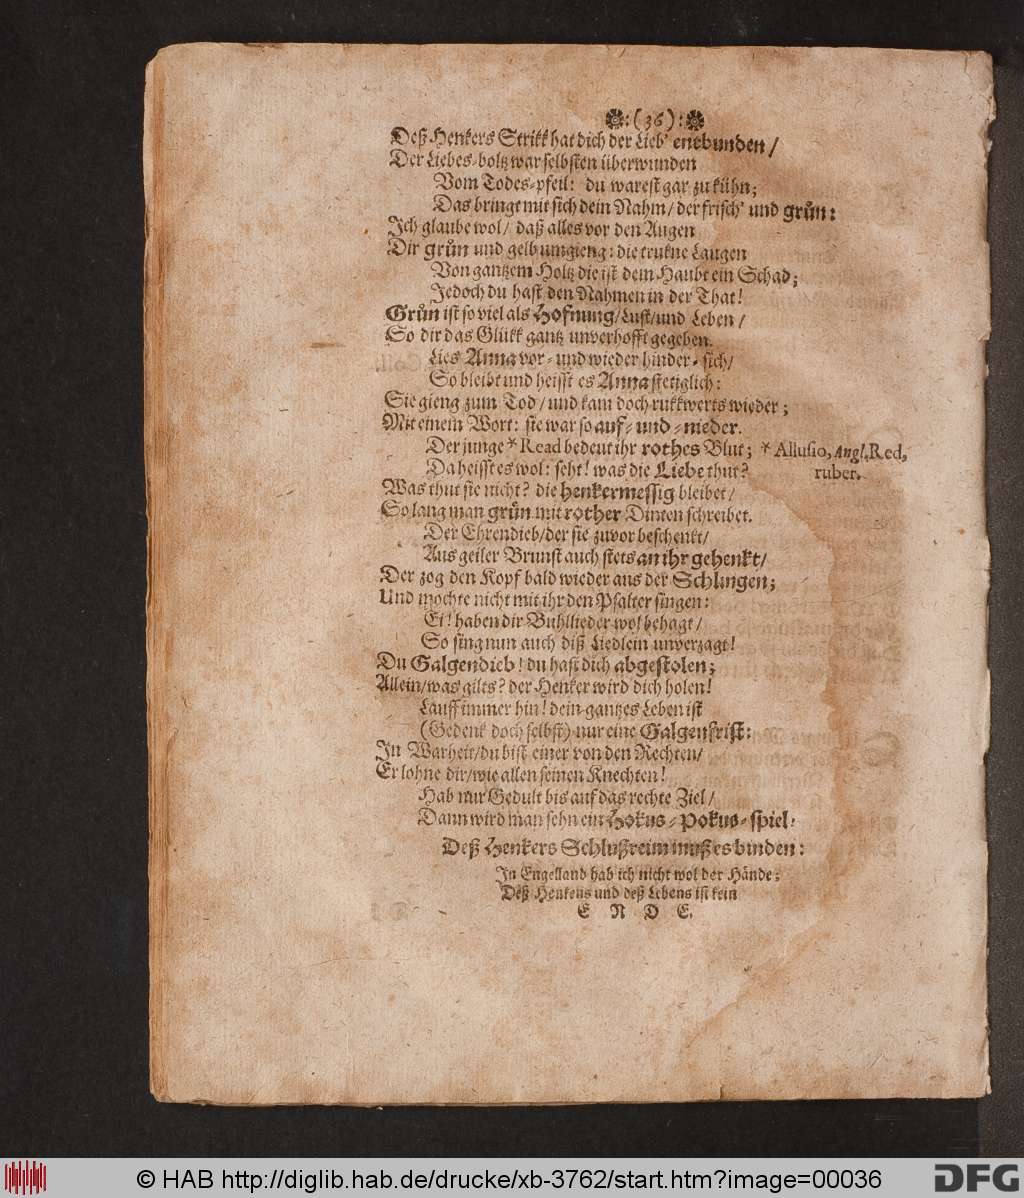 :(36):
Deß Henkers Strikk hat dich der Lieb' entbunden /
Der Liebes-boltz war selbsten überwunden
Vom Todes-pfeil: du warest gar zu kühn;
Das bringt mit sich dein Nahm / der frisch' und grůn:
Ich glaube wol / daß alles vor den Augen
Dir grůn und gelb umgieng: die trukne Laugen
Von gantzem Holtz die ist dem Haubt ein Schad;
Jedoch du hast den Nahmen in der That!
Grůn ist so viel als Hofnung / Lust / und Leben /
So dir das Glükk gantz unverhofft gegeben.
Lies Anna vor- und wieder hinder-sich /
So bleibt und heisst es Anna stetiglich:
Sie gieng zum Tod / und kam doch rukkwerts wieder;
Mit einem Wort: sie war so auf- und -nieder.
Der junge * Read bedeut ihr rothes Blut; * Allusio, Angl. Red,
Da heisst es wol: seht! was die Liebe thut? ruber.
Was thut sie nicht? die henkermessig bleibet /
So lang man grůn mit rother Dinten schreibet.
Der Ehrendieb / der sie zuvor beschenkt /
Aus geiler Brunst auch stets an ihr gehenkt /
Der zog den Kopf bald wieder aus der Schlingen;
Und mochte nicht mit ihr den Psalter singen:
Ei! haben dir Buhllieder wol behagt /
So sing nun auch diß Liedlein unverzagt!
Du Galgendieb! du hast dich abgestolen;
Allein / was gilts? der Henker wird dich holen!
Lauff immer hin! dein gantzes Leben ist
(Gedenk doch selbst) nur eine Galgenfrist:
In Warheit / du bist einer von den Rechten /
Er lohne dir / wie allen seinen Knechten!
Hab nur Gedult bis auf das rechte Ziel /
Dann wird man sehn ein Hokus-Pokus-spiel!
Deß Henkers Schlußreim muß es binden:
In Engelland hab ich nicht wol der Hände;
Deß Henkens und deß Lebens ist kein
E N D E.
© HAB http://diglib.hab.de/drucke/xb-3762/start.htm?image=00036
DFG